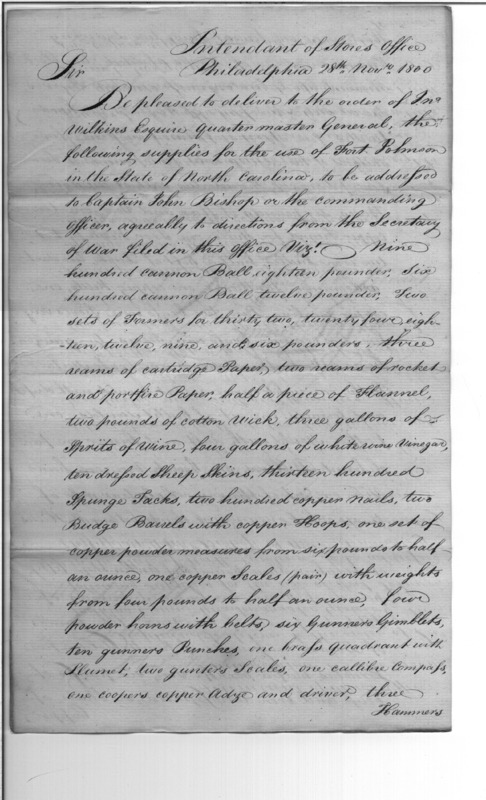 Intendant of Stores Office
Philadelphia 28th Novr. 1800
Sir
Be pleased to deliver to the order of Jno
Wilkins Esquire Quarter master General, the
following supplies for the use of Fort Johnson
in the State of North Carolina, to be addressed
to Captain John Bishop or the commanding
Officer, agreeably to directions from the Secretary
of War filed in this Office Vizt. Nine
hundred cannon Ball eighteen pounder, Six
hundred cannon Ball twelve pounder, Two
sets of Formers for thirty two, twenty four, eigh-
-teen, twelve, nine, and six pounders, three
reams of cartridge Paper, two reams of rocket
and portfire Paper, half a piece of Flannel,
two pounds of cotton Wick, three gallons of
Spirits of Wine, four gallons of white wine Vinegar,
ten dressed Sheep Skins, thirteen hundred
Spunge Tacks, two hundred copper nails, two
Budge Barrels with copper Hoops, one set of
copper powder measures from six pounds to half
an ounce, one copper Scales (pair) with weights
from four pounds to half an ounce, four
powder horns with belts, six Gunners Gimblets,
ten gunners Punches, one brass Quadrant with
Plumet, two gunters Scales, one callibre Compass,
one coopers copper Adze and driver, three
Hammers